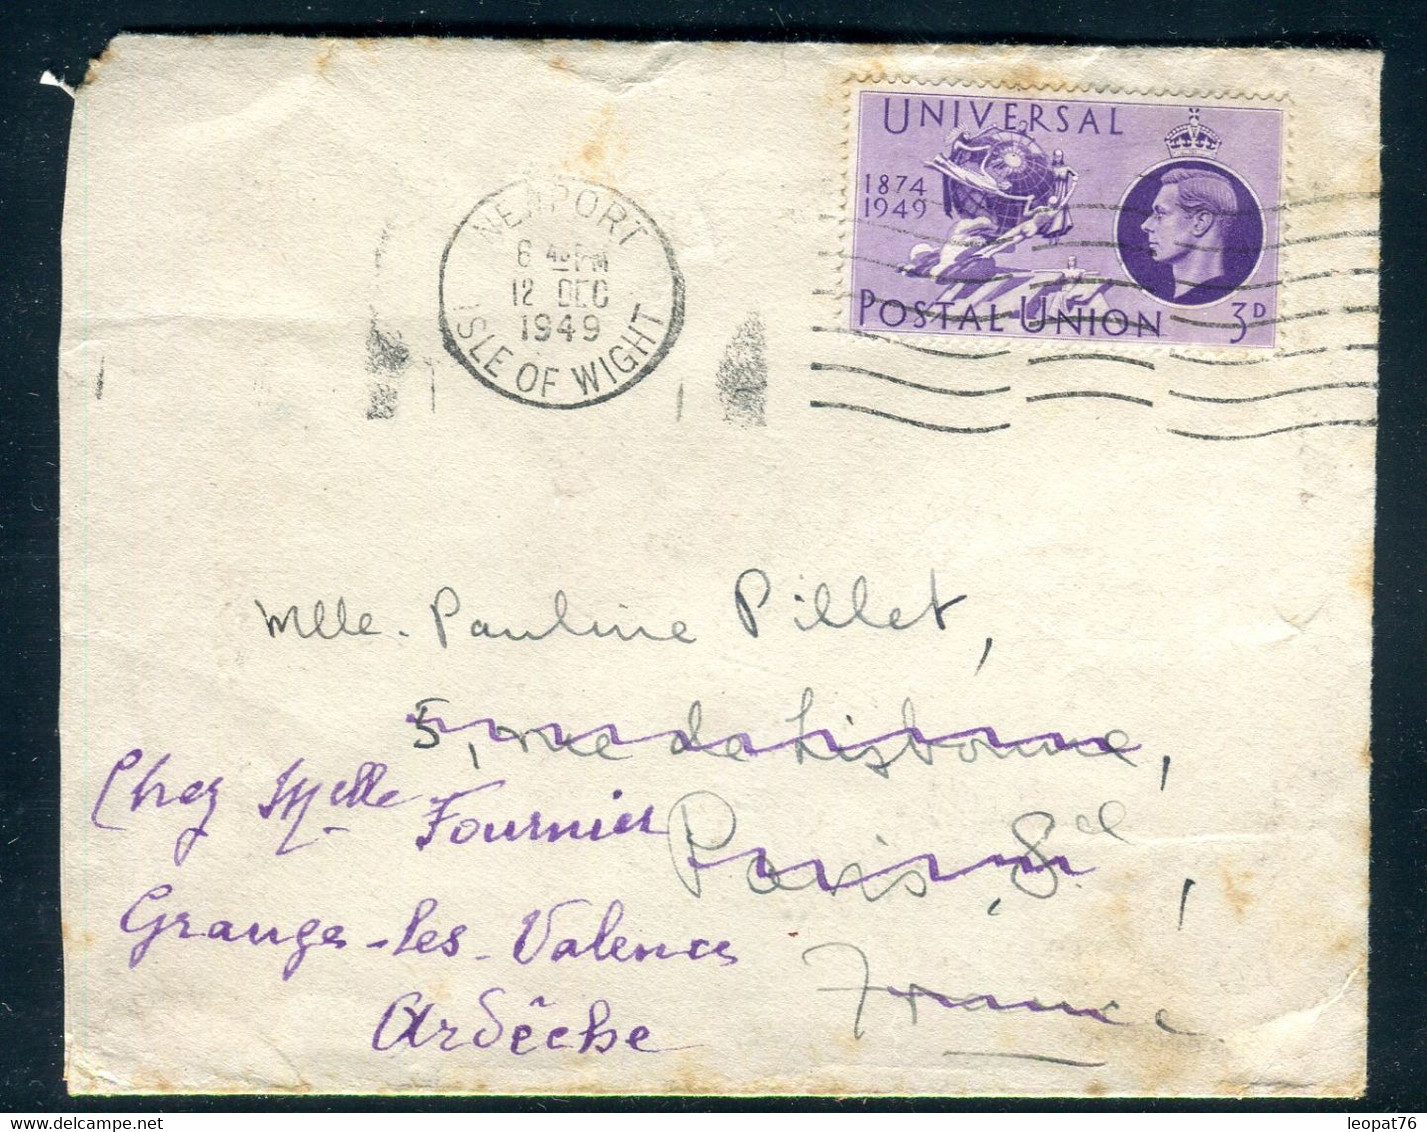 UNIVERSAL
1874
1949
POSTAL UNION 3D
NEWPORT
6 45 PM
12 DEC
1949
ISLE OF WIGHT
Mlle. Pauline Pillet,
5, rue de Lisbonne,
Paris, 8
France
Chez Melle Fournier
Granges-les-Valence
Ardêche
leopat76